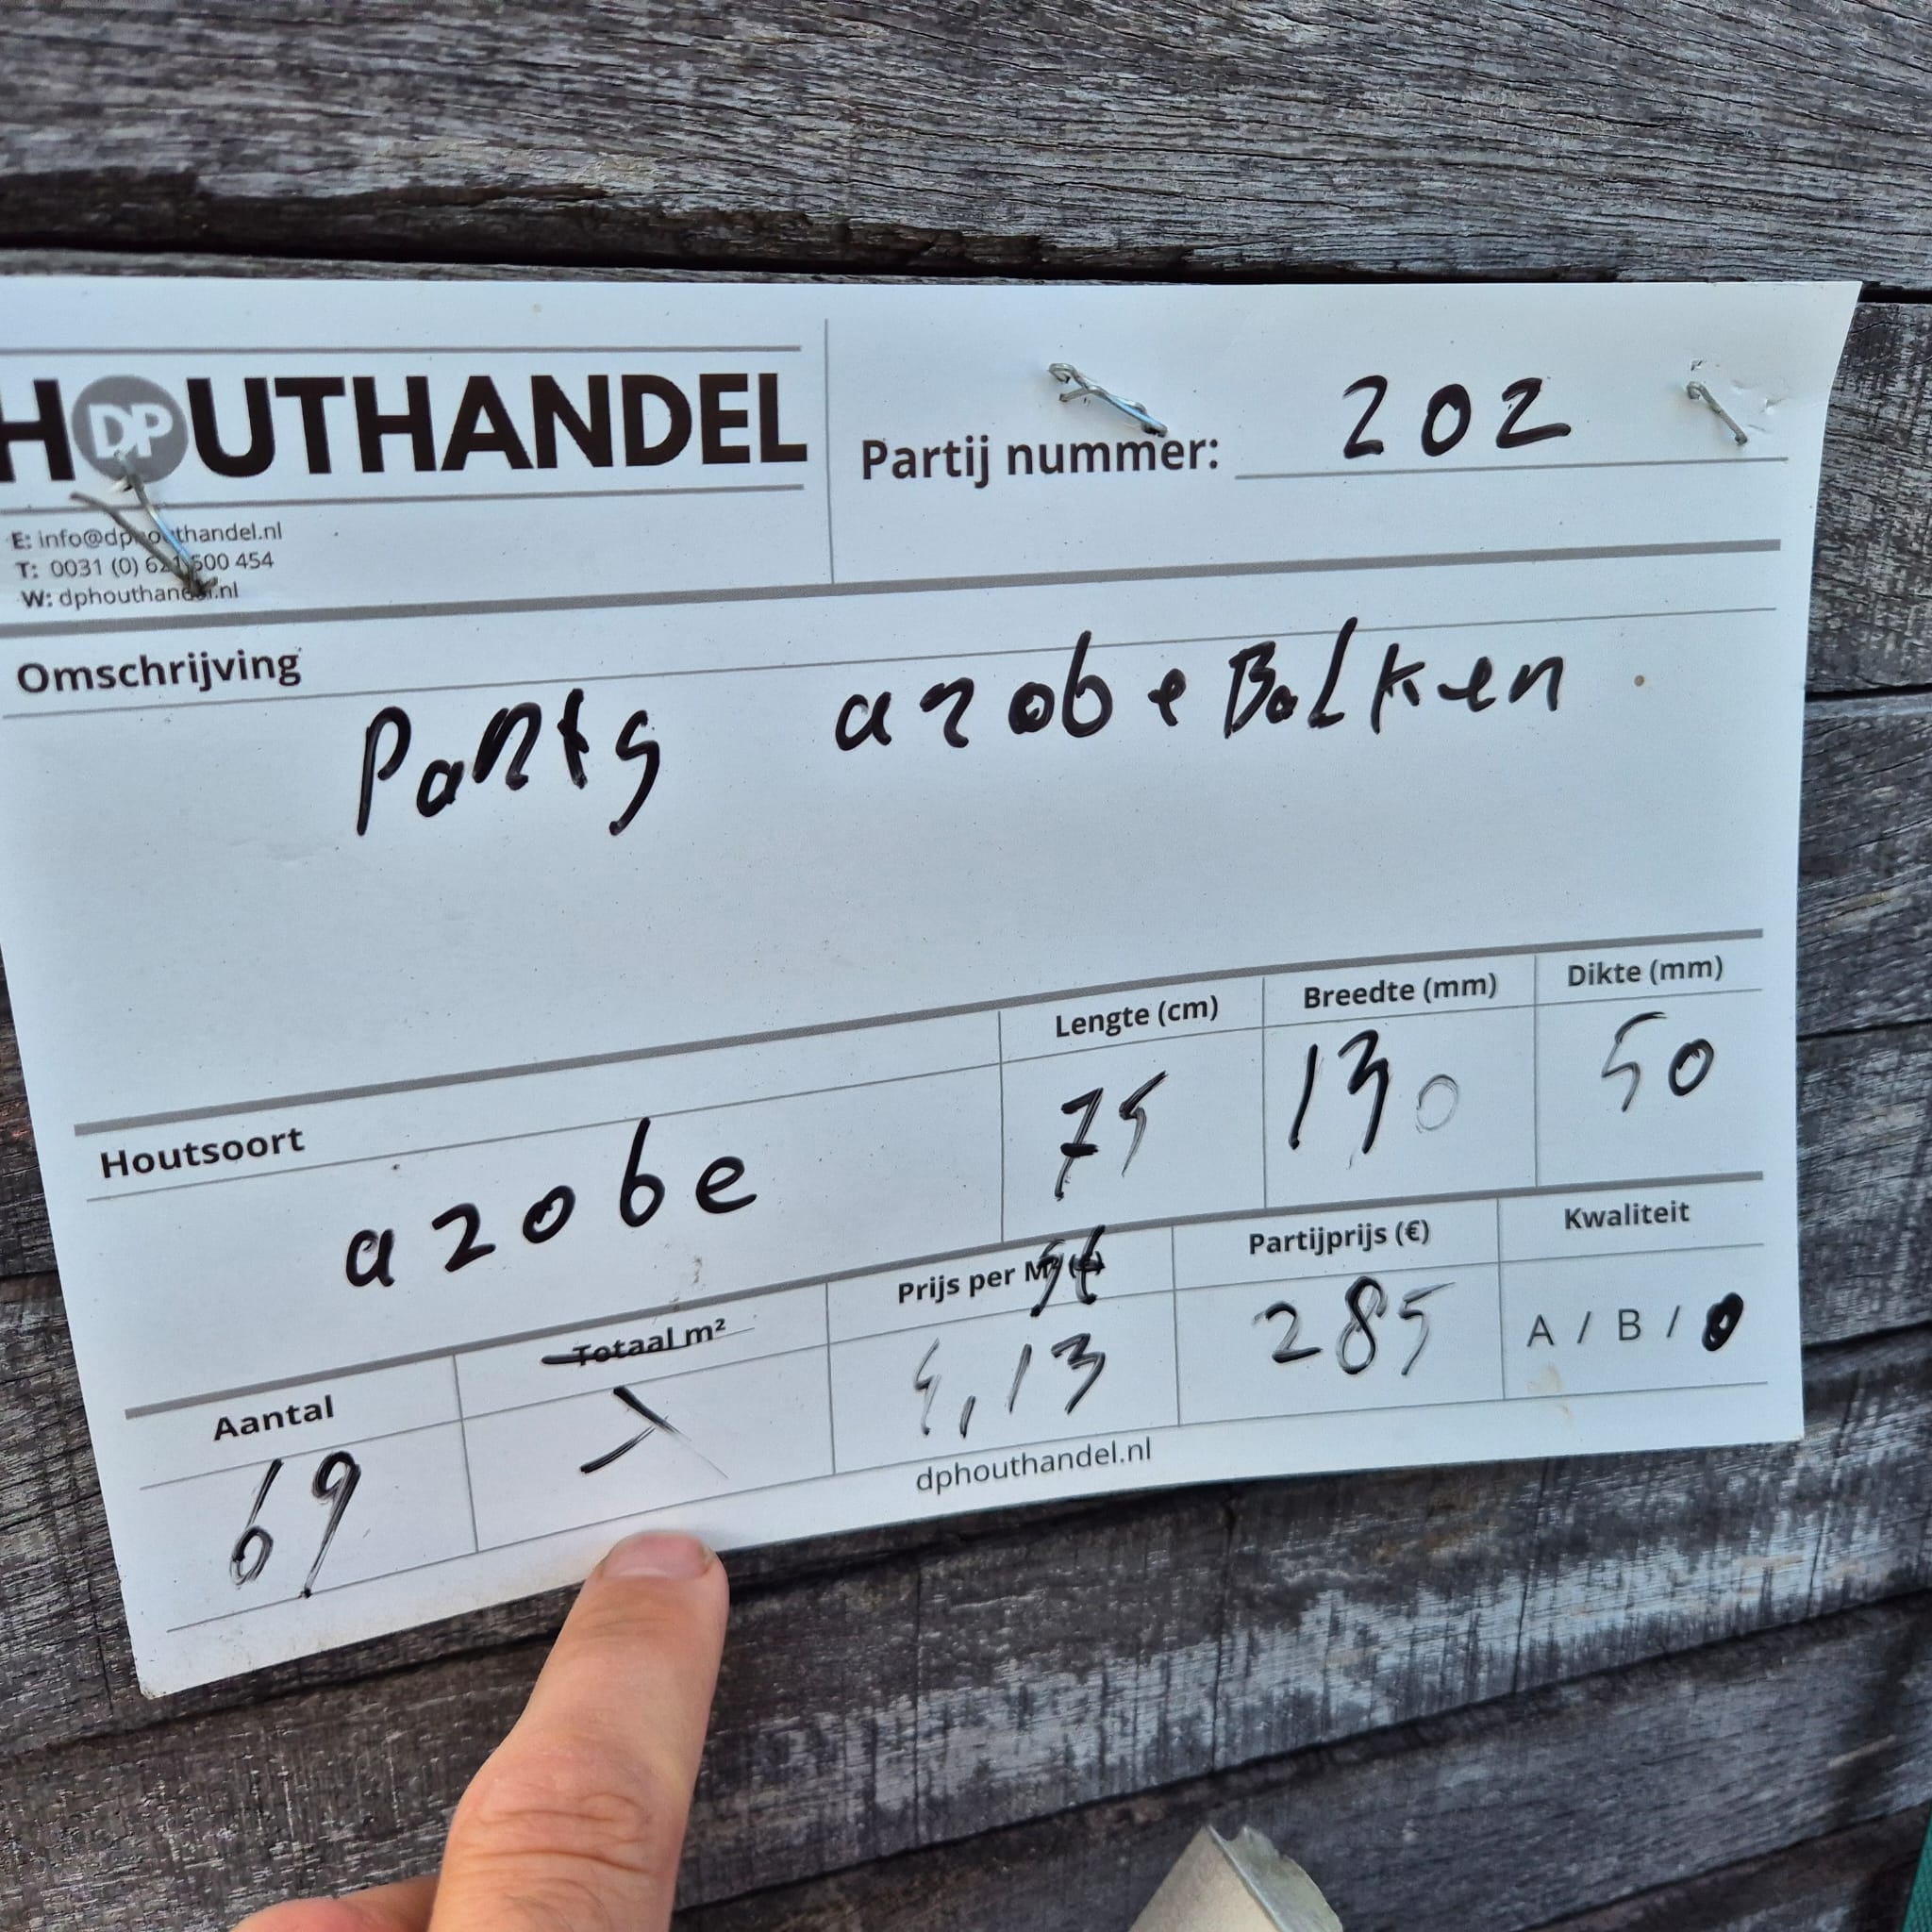 HOUTHANDEL
Partij nummer: 202
E: info@dphouthandel.nl
T: 0031 (0) 621 500 454
W: dphouthandel.nl
Omschrijving
Party azobe Balken
Houtsoort
azobe
Lengte (cm)
75
Breedte (mm)
130
Dikte (mm)
50
Aantal
69
Totaal m²
Prijs per M² st
4,13
Partijprijs (€)
285
Kwaliteit
A / B /
dphouthandel.nl